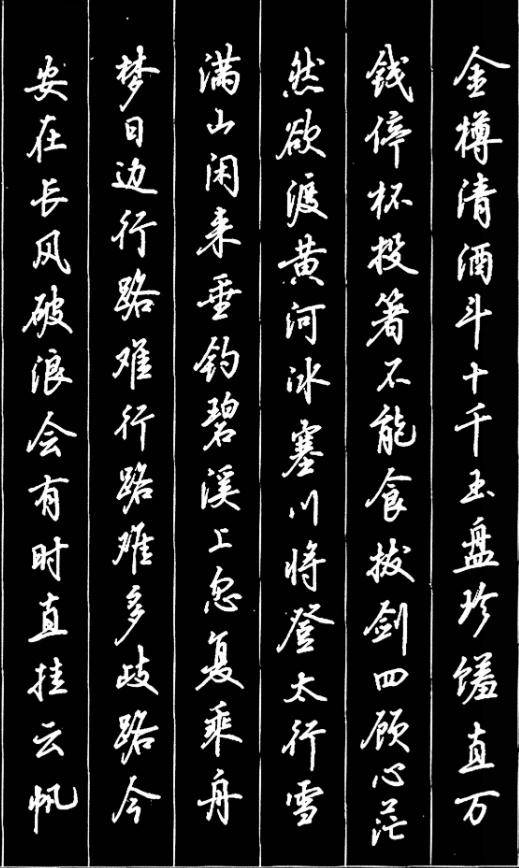 金樽清酒斗十千玉盘珍馐直万
钱停杯投箸不能食拔剑四顾心茫
然欲渡黄河冰塞川将登太行雪
满山闲来垂钓碧溪上忽复乘舟
梦日边行路难行路难多歧路今
安在长风破浪会有时直挂云帆